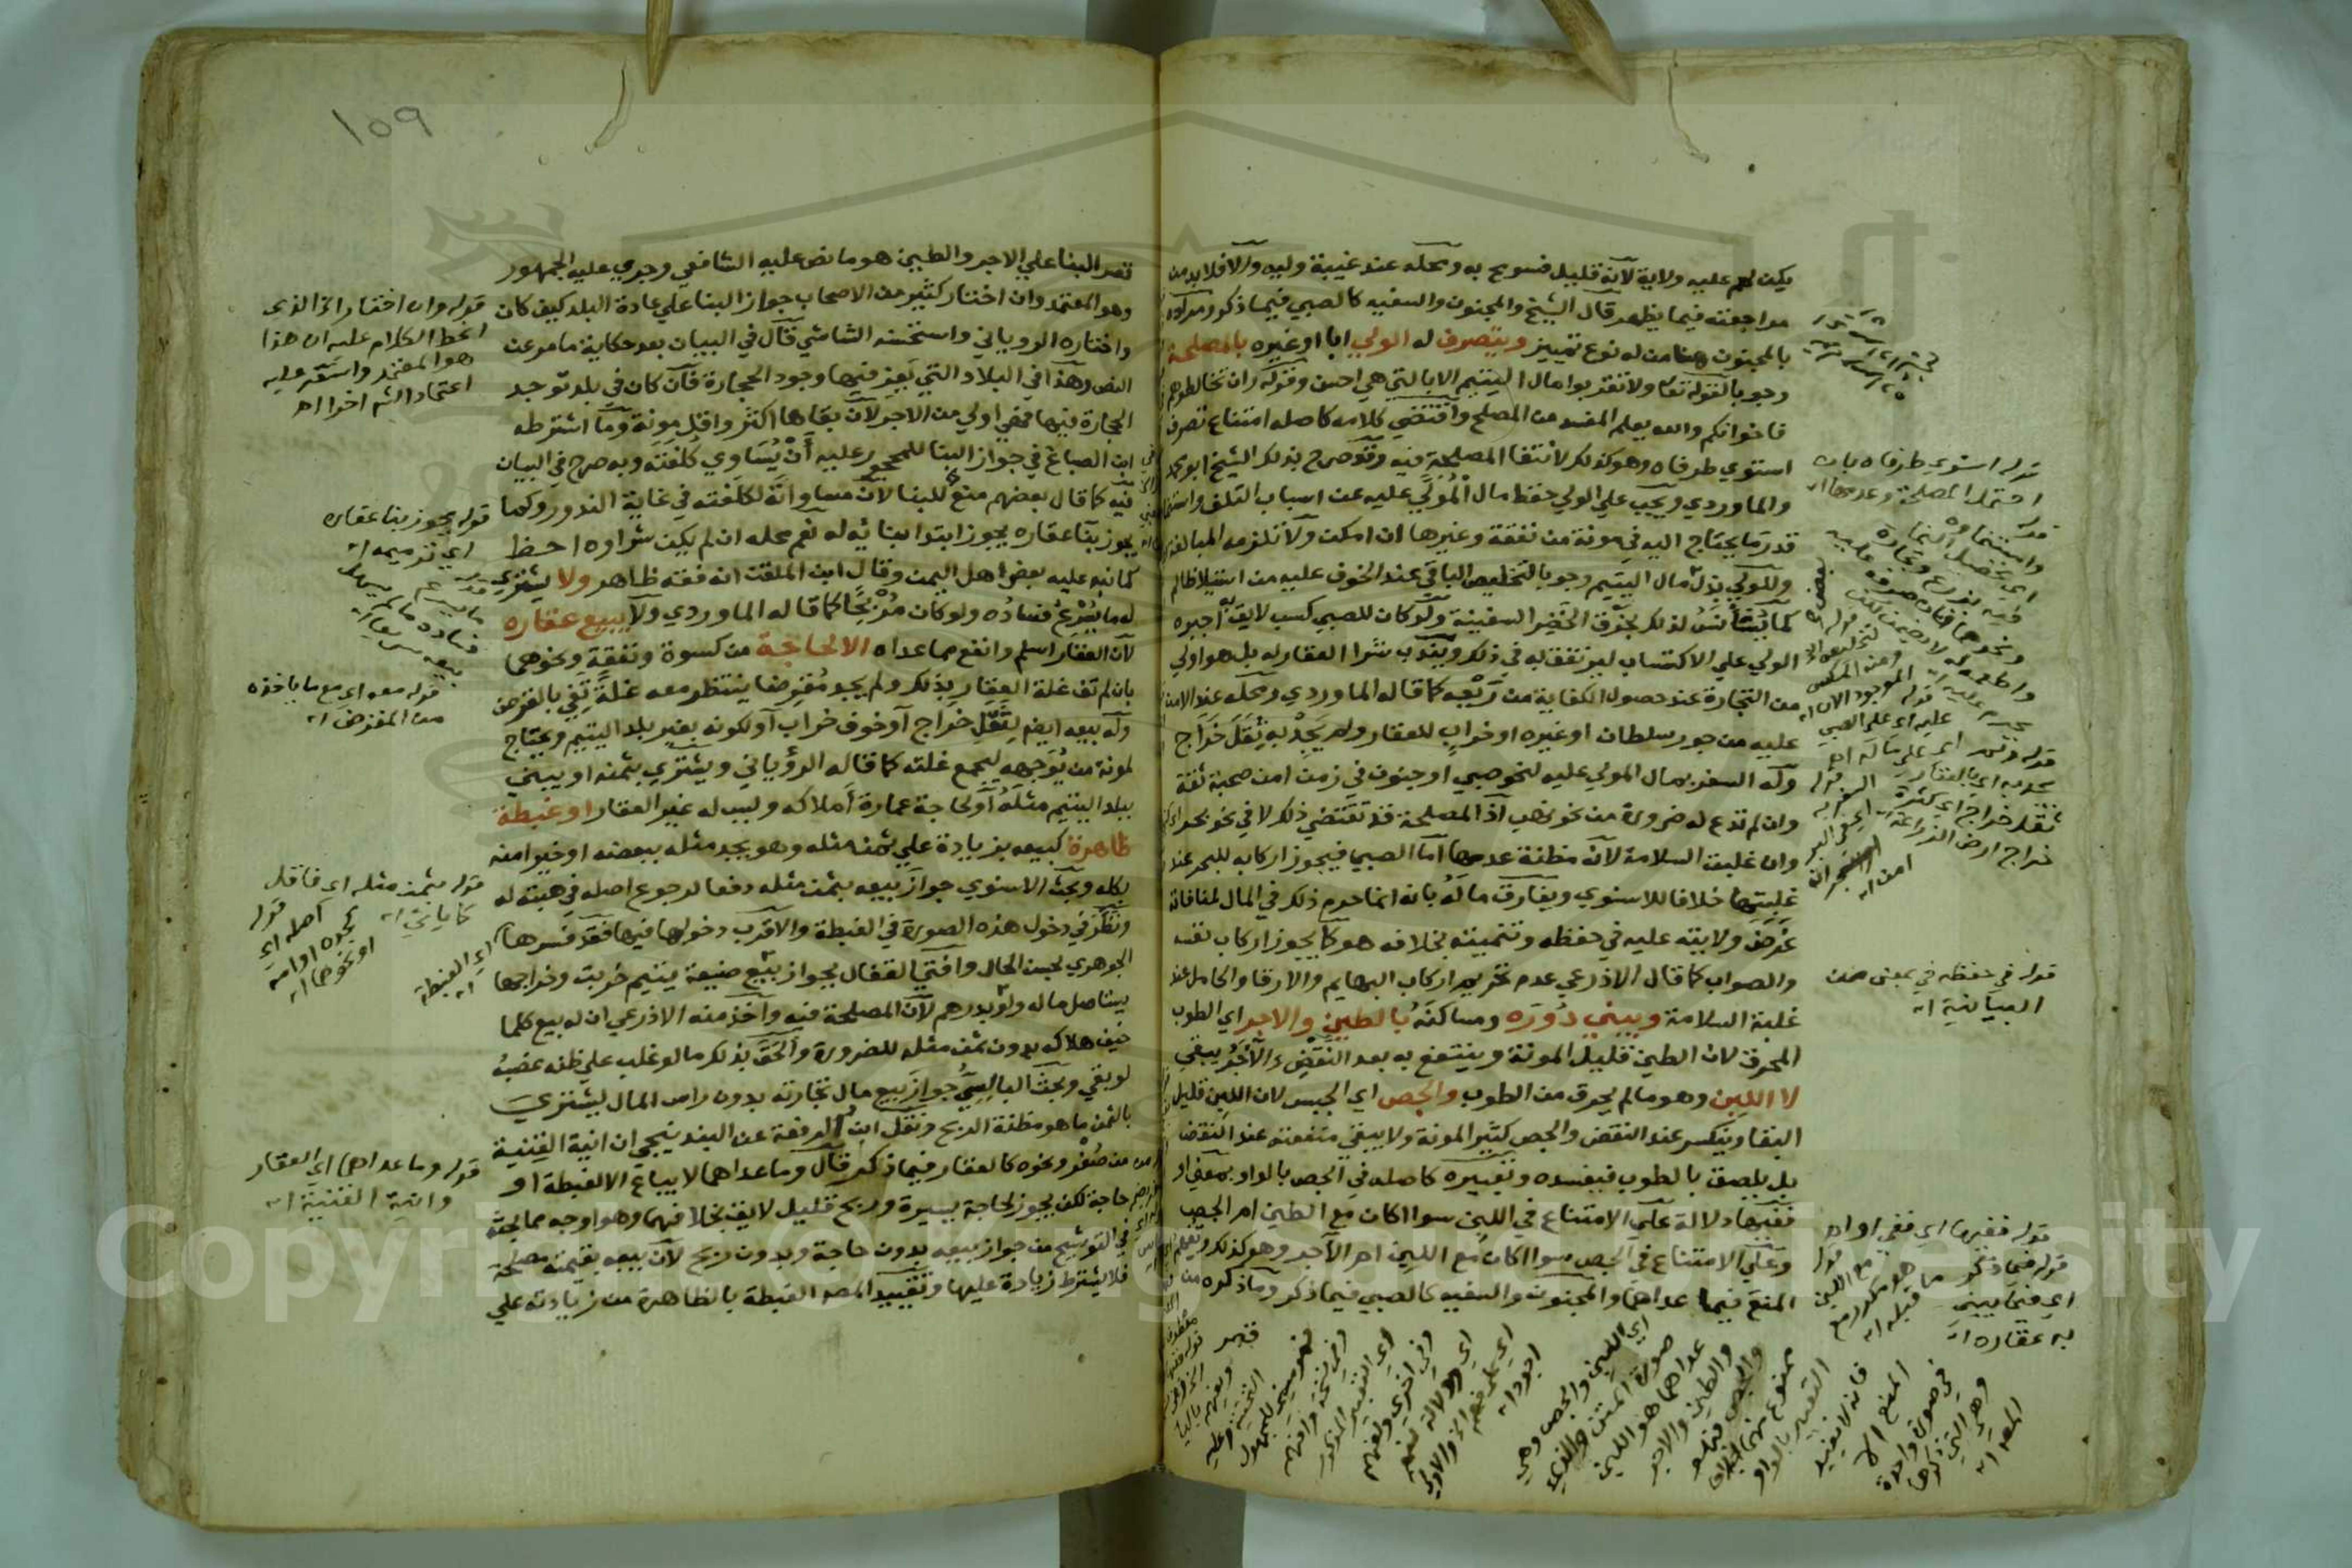 يكن له عليه ولاية لانه قليل فسومح به ومحله عند غيبة وليه والا فلا بد من
مراجعته فيما يظهر قال الشيخ والمجنون والسفيه كالصبي فيما ذكر ومراده
بالمجنون هنا من له نوع تمييز ويتصرف له الولي ابا او غيره بالمصلحة
وجوبا لقوله تعا ولا تقربوا مال اليتيم الا بالتي هي احسن وقوله وان تخالطوهم
فاخوانكم والله يعلم المفسد من المصلح واقتضى كلامه كاصله امتناع تصرف
استوي طرفاه وهو كذلك لانتفا المصلحة فيه وقد صرح بذلك الشيخ ابو محمد
والماوردي ويجب على الولي حفظ مال المُوَلَّي عليه عن اسباب التلف واستنما
قدر ما يحتاج اليه في مونة من نفقة وغيرها ان امكن ولا تلزمه المبالغة
وللولي بذل مال اليتيم وجوبا لتخليص الباقي عند الخوف عليه من استيلا ظالم
كما يُستأنَسُ لذلك بخرق الخَضِر السفينة ولو كان للصبي كسب لايق به اجبره
الولي على الاكتساب ليرتفق به في ذلك ويندب شرا العقار له بل هو اولي
من التجارة عند حصول الكفاية من رَيْعِه كما قاله الماوردي ومحله عند الامن
عليه من جور سلطان او غيره او خراب للعقار ولم يَجِدْ به ثِقَلَ خَرَاج
وله السفر بمال المولي عليه لنحو صبي او جنون في زمن امن صحبة ثقة
وان لم تدع له ضرورة من نحو نهب اذ المصلحة قد تقتضي ذلك لا في نحو بحر
وان غلبت السلامة لانه مظنة عدمها اما الصبي فيجوز اركابه للبحر عند
غلبتها خلافا للاسنوي ويفارق ماله بانه انما حرم ذلك في المال لمنافاته
غرض ولايته عليه في حفظه وتنميته بخلافه هو كما يجوز اركاب نفسه
والصواب كما قال الاذرعي عدم تحريم اركاب البهايم والارقا والحامل عند
غلبة السلامة ويبني دُورَه ومساكنَه بالطين والاجر اي الطوب
المحرق لان الطين قليل المونة وينتفع به بعد النَّقْضِ والآجر يبقى
لا اللبِن وهو ما لم يحرق من الطوب والجص اي الجبس لان اللبن قليل
البقا وينكسر عند النقض والجص كثير المونة ولا يبقي منفعته عند النقض
بل يلصق بالطوب فيفسده وتعبيره كاصله في الجص بالواو بمعني او
ففيهما دلالة علي الامتناع في اللبِن سوا اكان مع الطين ام الجص
وعلي الامتناع في الجص سوا اكان مع اللبِن ام الآجر وهو كذلك
المنع فيما عداهما والمجنون والسفيه كالصبي فيما ذكر وما ذكره من
قوله استوي طرفاه بان
احتمل المصلحة وعدمها اه
قوله في حفظه في بمعنى من
البيانية اه
قوله ففيهما اي ففي او اه
قوله فيما ذكر
اي فيما يبني
به عقاره اه
١٥٩
قصر البنا علي الاجر والطين هو ما نص عليه الشافعي وجري عليه الجمهور
وهو المعتمد وان اختار كثير من الاصحاب جواز البنا علي عادة البلد كيف كان
واختاره الروياني واستحسنه الشاشي قال في البيان بعد حكاية ما مر عن
النص وهذا في البلاد التي يعز فيها وجود الحجارة فان كان في بلد توجد
الحجارة فيها فهي اولي من الاجر لان بقاها اكثر واقل مونة وما اشترطه
ابن الصباغ في جواز البنا للمحجور عليه أَنْ يُسَاوِي كُلْفَتَه وبه صرح في البيان
فيه كما قال بعضهم منع للبنا لان مساواته لكلفته في غاية الندور وكما
يجوز بنا عقاره يجوز ابتدا بنايه له نعم محله ان لم يكن شراوه احظ
كما نبه عليه بعض اهل اليمن وقال ابن الملقن انه فقه ظاهر ولا يشتري
له ما يُسْرِعُ فسادُه ولو كان مُرْبِحًا كما قاله الماوردي ولا يبيع عقاره
لان العقار اسلم وانفع مما عداه الا لحاجة من كسوة ونفقة ونحوهما
بان لم تف غلة العقار بذلك ولم يجد مُقرِضا ينتظر معه غلةً تَفِي بالقرض
وله بيعه ايضا لِثِقَلِ خراج او خوف خراب او لكونه بغير بلد اليتيم ويحتاج
لمونة من يُوَجِّهه ليجمع غلته كما قاله الرُّوياني ويشتري بثمنه او يبني
ببلد اليتيم مثلَه او لحاجة عمارة أملاكه وليس له غير العقار او غبطة
ظاهرة كبيعه بزيادة علي ثمن مثله وهو يجد مثله ببعضه او خيرا منه
بكله وبحث الاسنوي جواز بيعه بثمن مثله دفعا لرجوع اصله في هبته له
ونُظِرَ في دخول هذه الصورة في الغبطة والاقرب دخولها فيها فقد فسرها
الجوهري بحسن الحال وافتي القفال بجواز بيع ضيعة يتيم خربت وخراجها
يستاصل ماله ولو بدرهم لان المصلحة فيه واخذ منه الاذرعي ان له بيع كلما
خيف هلاكه بدون ثمن مثله للضرورة والحَقَ بذلك ما لو غلب علي ظنه غصبُه
لو بقي وبحث البالِسِيُّ جواز بيع مال تجارته بدون راس المال ليشتري
بالثمن ما هو مظنة الربح ونقل ابن الرفعة عن البندنيجي ان انية القِنْية
من صُفْر ونحوه كالعقار فيما ذكر قال وما عداهما لا يباع الا لغبطة او
حاجة لكن يجوز لحاجة يسيرة وربح قليل لايق بخلافهما وهو اوجه مما بحثه
في التوشيح من جواز بيعه بدون حاجة وبدون ربح لان بيعه بقيمته مصلحة
فلا يشترط زيادة عليها وتقييد المصـ الغبطة بالظاهرة من زيادته علي
قوله وان اختار الخ الذي
انحط الكلام عليه ان هذا
هو المعتمد واستقر عليه
اعتماد الشـ اخرا اه
قوله يجوز بنا عقاره
اي ترميمه اه
قوله معه اي مع ما ياخذه
من المقرض اه
قوله بثمن مثله اي فاقل
كما ياتي اه
اي الغبطة
اه
قوله وما عداهما اي العقار
وانية القنية اه
Copyright © King Saud University